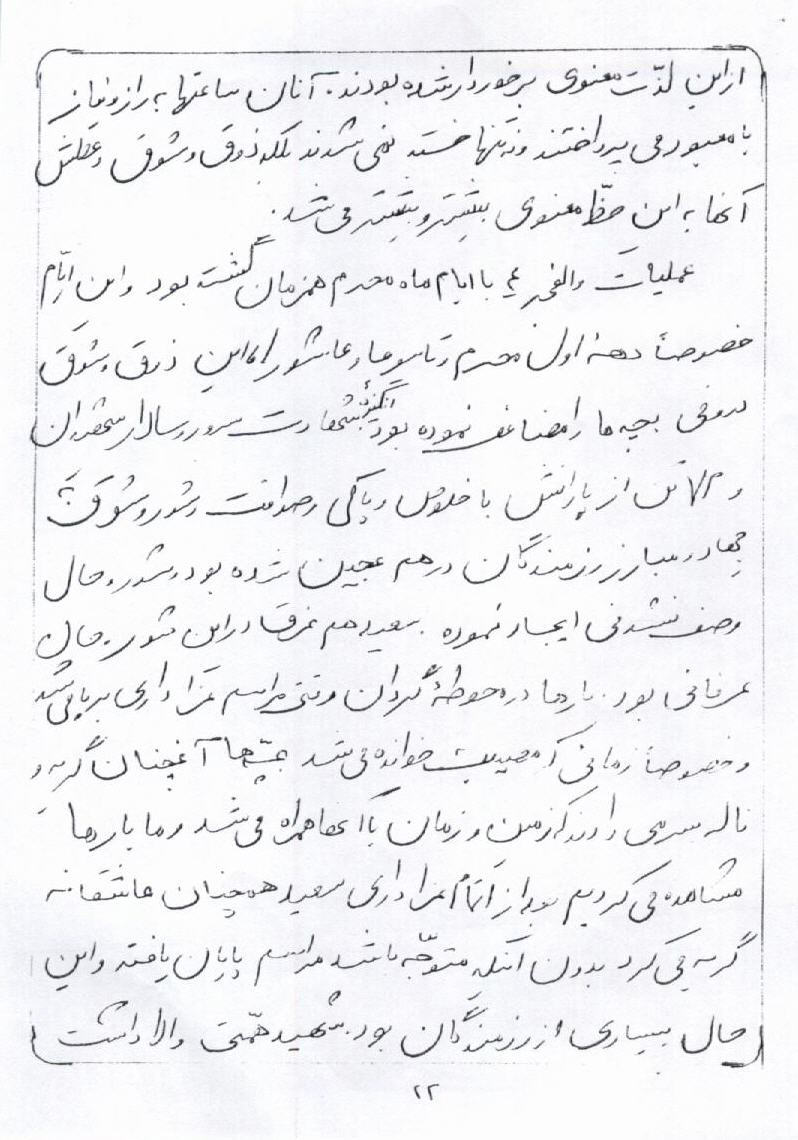 از این لذّت معنوی برخوردار شده بودند. آنان ساعتها به راز و نیاز
با معبود می پرداختند و نه تنها خسته نمی شدند بلکه ذوق و شوق و عطش
آنها به این حظّ معنوی بیشتر و بیشتر می شد.
عملیات والفجر ۴ با ایام ماه محرم همزمان گشته بود و این ایّام
خصوصاً دههٔ اول محرم و تاسوعا و عاشورا، این ذوق و شوق
معنوی بچه ها را مضاعف نموده بود انگیزهٔ شهادت سرور و سالار شهیدان
و ۷۲ تن از یارانش با خلوص و پاکی و صداقت و شور و شوق
جهاد و مبارزه رزمندگان در هم عجین شده بود و شور و حال
وصف نشدنی ایجاد نموده. سعید هم غرق در این شور و حال
عرفانی بود. بارها در محوطهٔ گردان وقتی مراسم عزاداری برپا می شد
و خصوصاً زمانی که مصیبت خوانده می شد بچه ها آنچنان گریه و
ناله سر می دادند که زمین و زمان با آنها همراه می شد و ما بارها
مشاهده می کردیم بعد از اتمام عزاداری سعید همچنان عاشقانه
گریه می کرد بدون آنکه متوجّه باشد مراسم پایان یافته و این
حال بسیاری از رزمندگان بود. شهید همّتی والا داشت
۲۲